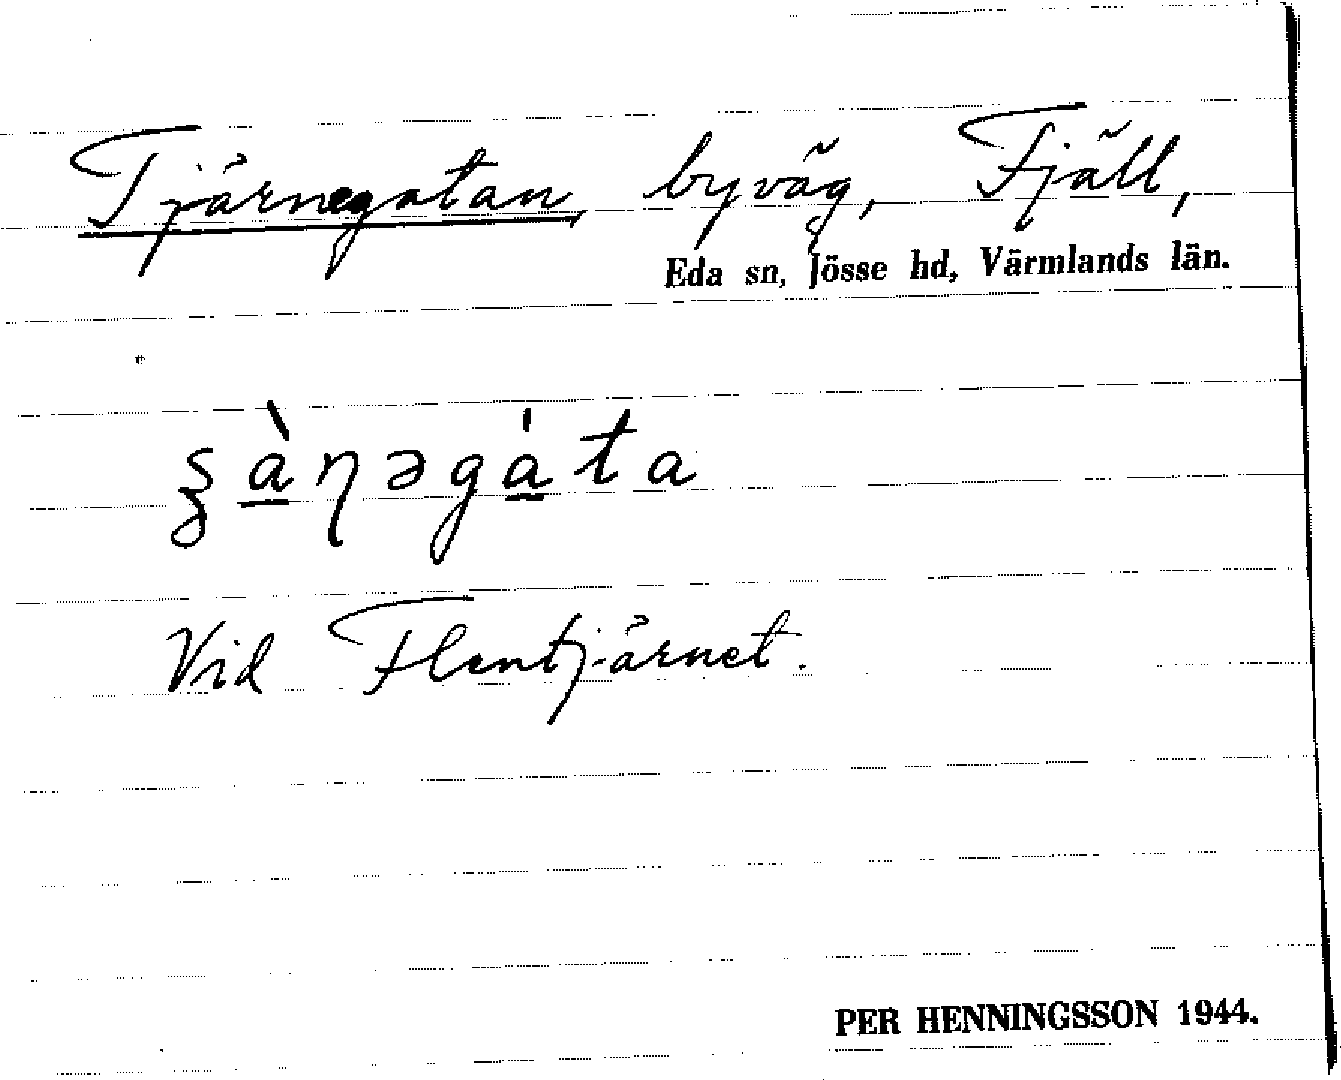 Tjärnegatan, byväg, Fjäll,
Eda sn, Jösse hd, Värmlands län.
ʂà̠ɳəgá̠ta
Vid Flentjärnet.
PER HENNINGSSON 1944.